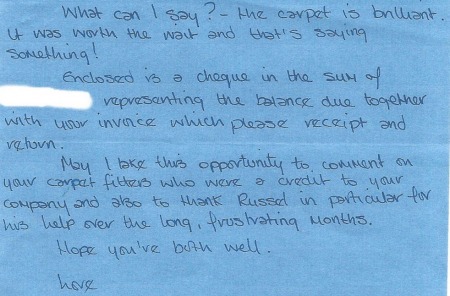 What can I say? - the carpet is brilliant.
It was worth the wait and that's saying
something!
Enclosed is a cheque in the sum of
representing the balance due together
with your invoice which please receipt and
return.
May I take this opportunity to comment on
your carpet fitters who were a credit to your
company and also to thank Russel in particular for
his help over the long, frustrating months.
Hope you've both well.
Love